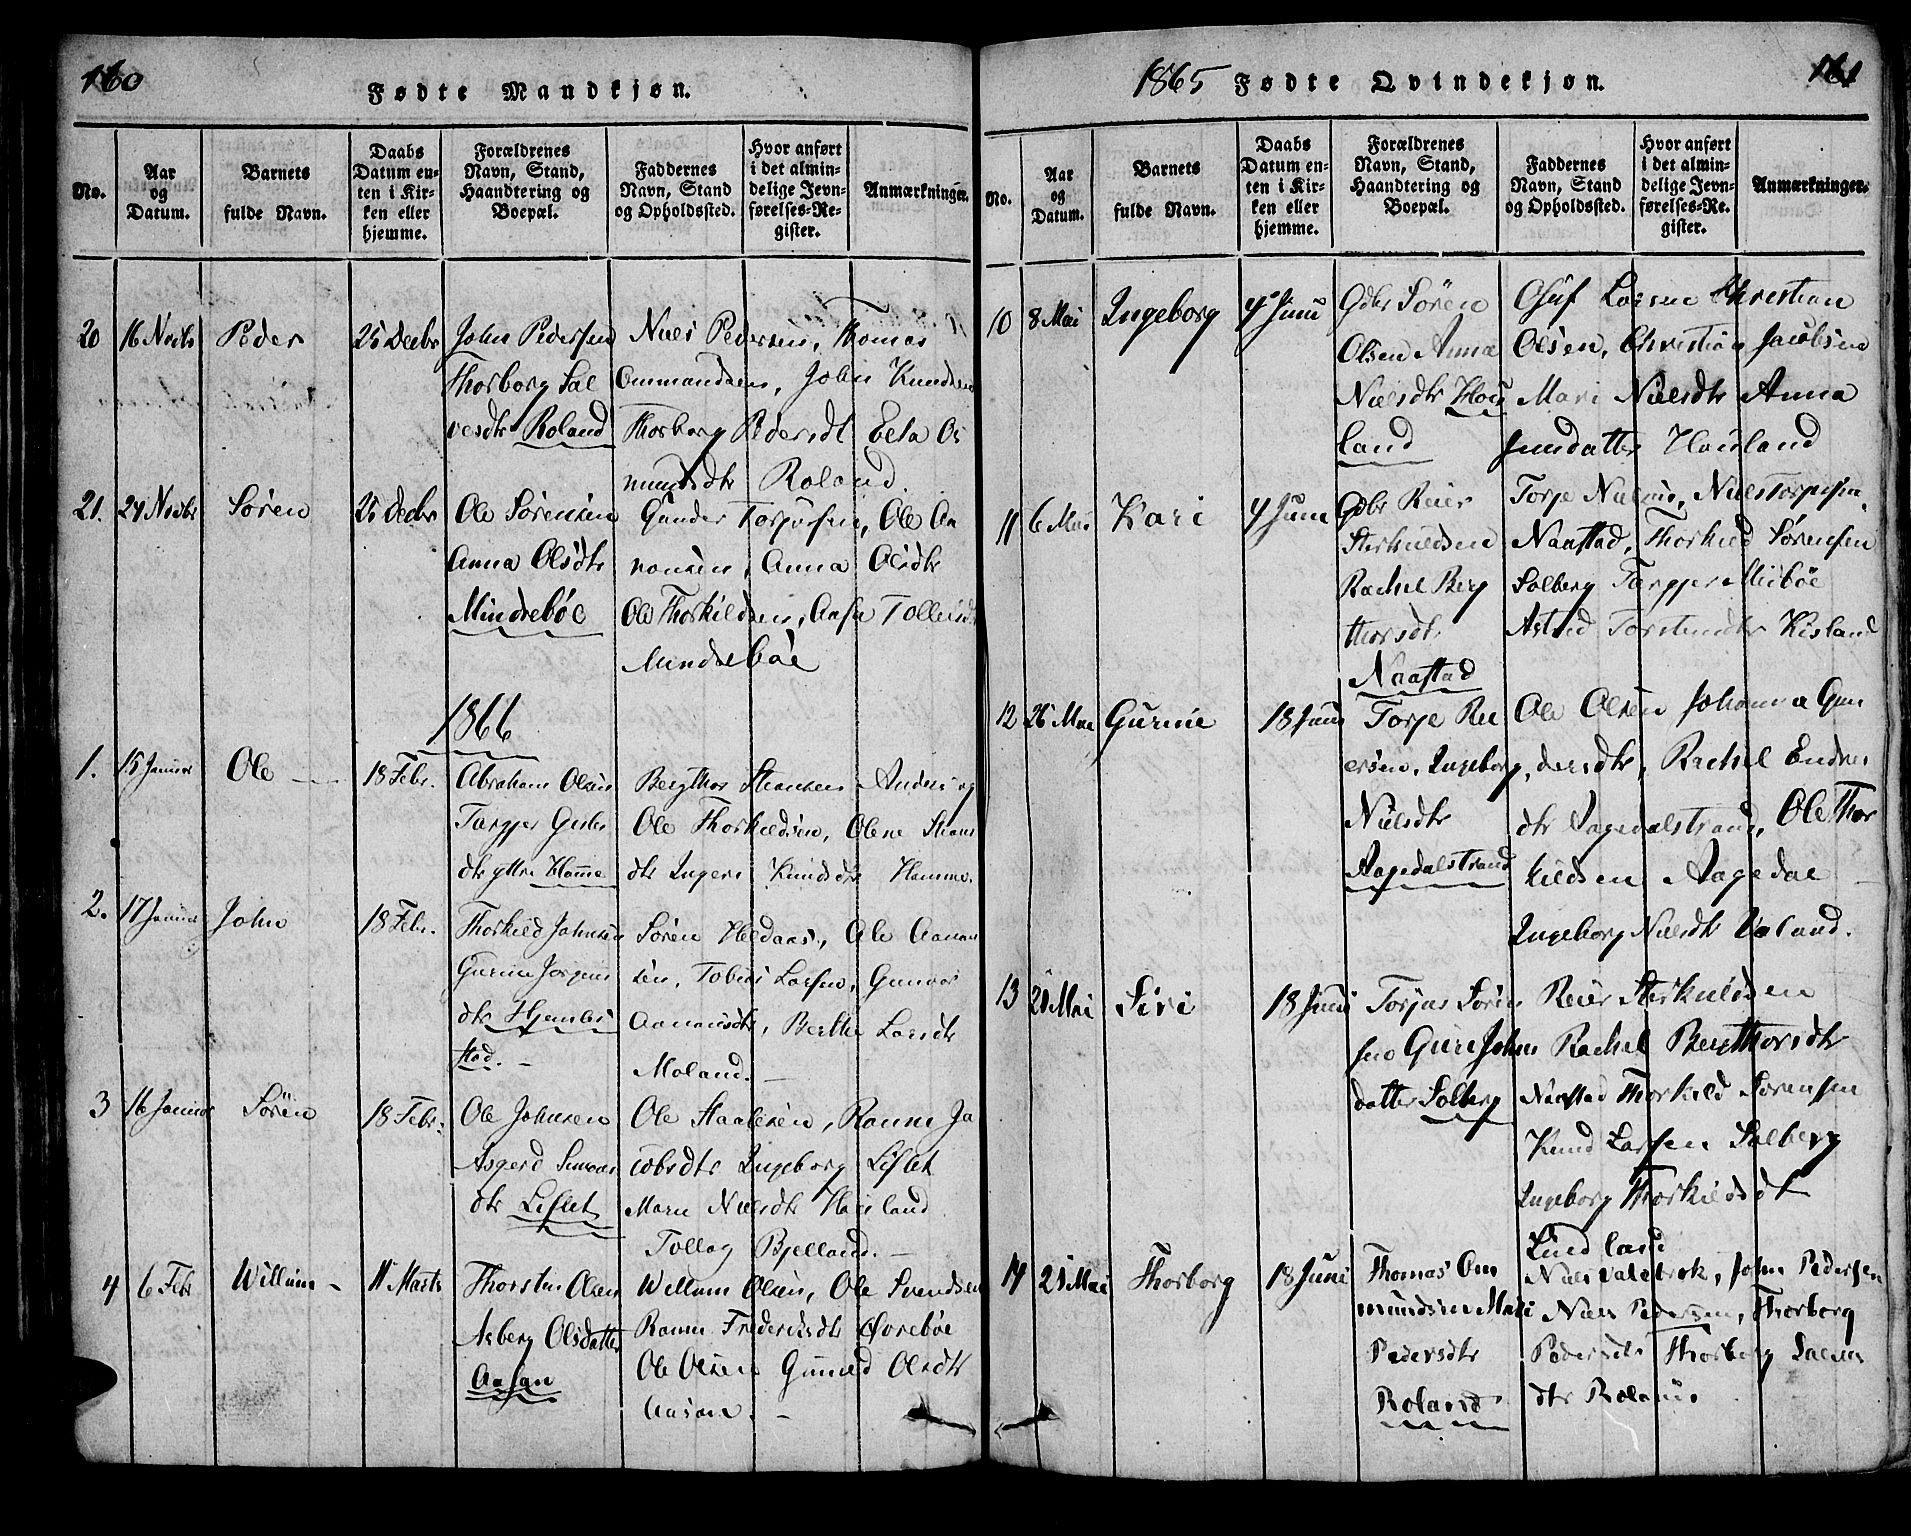 160
Fødte Mandkjøn.
No.
Aar
og
Datum.
Barnets
fulde Navn.
Daabs
Datum en-
ten i Kir-
ken eller
hjemme.
Forældrenes
Navn, Stand,
Haandtering og
Boepæl.
Faddernes
Navn, Stand
og Opholdssted.
Hvor anført
i det almin-
delige Jevn-
førelses-Re-
gister.
Anmærkninger.
20 16 Novbr Peder 25 Decbr
John Pedersen
Thorborg Sal
vesdtr Roland
Niels Pedersen, Thomas
Ommundsen, John Knudsen
Thorborg Pedersdt Eela Os
mundsdtr Roland.
21. 24 Novbr Sören 25 Decbr
Ole Sörensen
Anna Olsdtr
Mindreböe
Gunder Torjusen, Ole Aa
nonsen, Anna Olsdtr
Ole Thorkildsen, Aasa Tollesdtr
Mindreböe
1866
1. 15 Januar Ole 18 Febr.
Abraham Olsen
Targjer
dtr yttre Homme
Bergthor
Ole Thorkildsen, Olene
dtr Ingeri Knudsdtr Homme.
2. 17 Januar John 18 Febr.
Thorkild Johnsen
Gurine Jörgens
dtr
stad.
Sören Heldaas, Ole Aanon
sen, Tobias Larsen, Gunvor
Aanonsdtr, Berthe Larsdtr
Moland.
3 16 Januar Sören 18 Febr.
Ole Johnsen
Asgerd Simons
dtr Liflet
Ole Staalesen, Ranni Ja
cobsdtr Ingeborg Liflet
Maren Nielsdtr Housland
Tollag Bjelland.
4 6 Febr Willum 11 Marts
Thorsten Olsen
Asberg Olsdatter
Aasan
Willum Olsen, Ole Svendsen
Ranni Frederiksdtr Örebøe
Ole Olsen Gunild Olsdtr
Aasan.
1865 Fødte Qvindekjøn.
161
No.
Aar
og
Datum.
Barnets
fulde Navn.
Daabs
Datum en-
ten i Kir-
ken eller
hjemme.
Forældrenes
Navn, Stand,
Haandtering og
Boepæl.
Faddernes
Navn, Stand
og Opholdssted.
Hvor anført
i det almin-
delige Jevn-
førelses-Re-
gister.
Anmærkninger.
10 8 Mai Ingeborg 4 Juni
Gdbr Sören
Olsen Anna
Nielsdtr Hous
land
Oluf Larsen Christian
Olsen, Christian Jacobsen
Mari Nielsdtr Anna
Jensdatter Housland
11 6 Mai Kari 4 Juni
Gdbr Reier
Sterkuldsen
Rachel Berg
thorsdtr
Naastad
Torje Nielsen, Niels Torjesen,
Naastad, Thorkild Sörensen
Solberg Targjer Meiböe
Astrid Torstensdtr Kisland
12 26 Mai Gurine 18 Juni
Torje Rei
ersen, Ingeborg
Nielsdtr
Aagedalstrand
Ole Olsen Johanna Gun
dersdtr, Rachel Endres
dtr Aagedalstrand, Ole Thor
kildsen Aagedal
Ingeborg Nielsdtr Valand.
13 20 Mai Siri 18 Juni
Torjus Sören
sen Guri Johns
datter Solberg
Reier Sterkuldsen
Rachel Bergthorsdtr
Naastad Thorkild Sörensen
Knud Larsen Solberg
Ingeborg Thorkildsdt
Lindland
14 21 Mai Thorborg 18 Juni
Thomas Om
mundsen Mari
Pedersdtr
Roland
Niels Valebrok, John Pedersen
Niels Pedersen, Thorborg
Pedersdtr Thorborg Salves
dtr Roland.